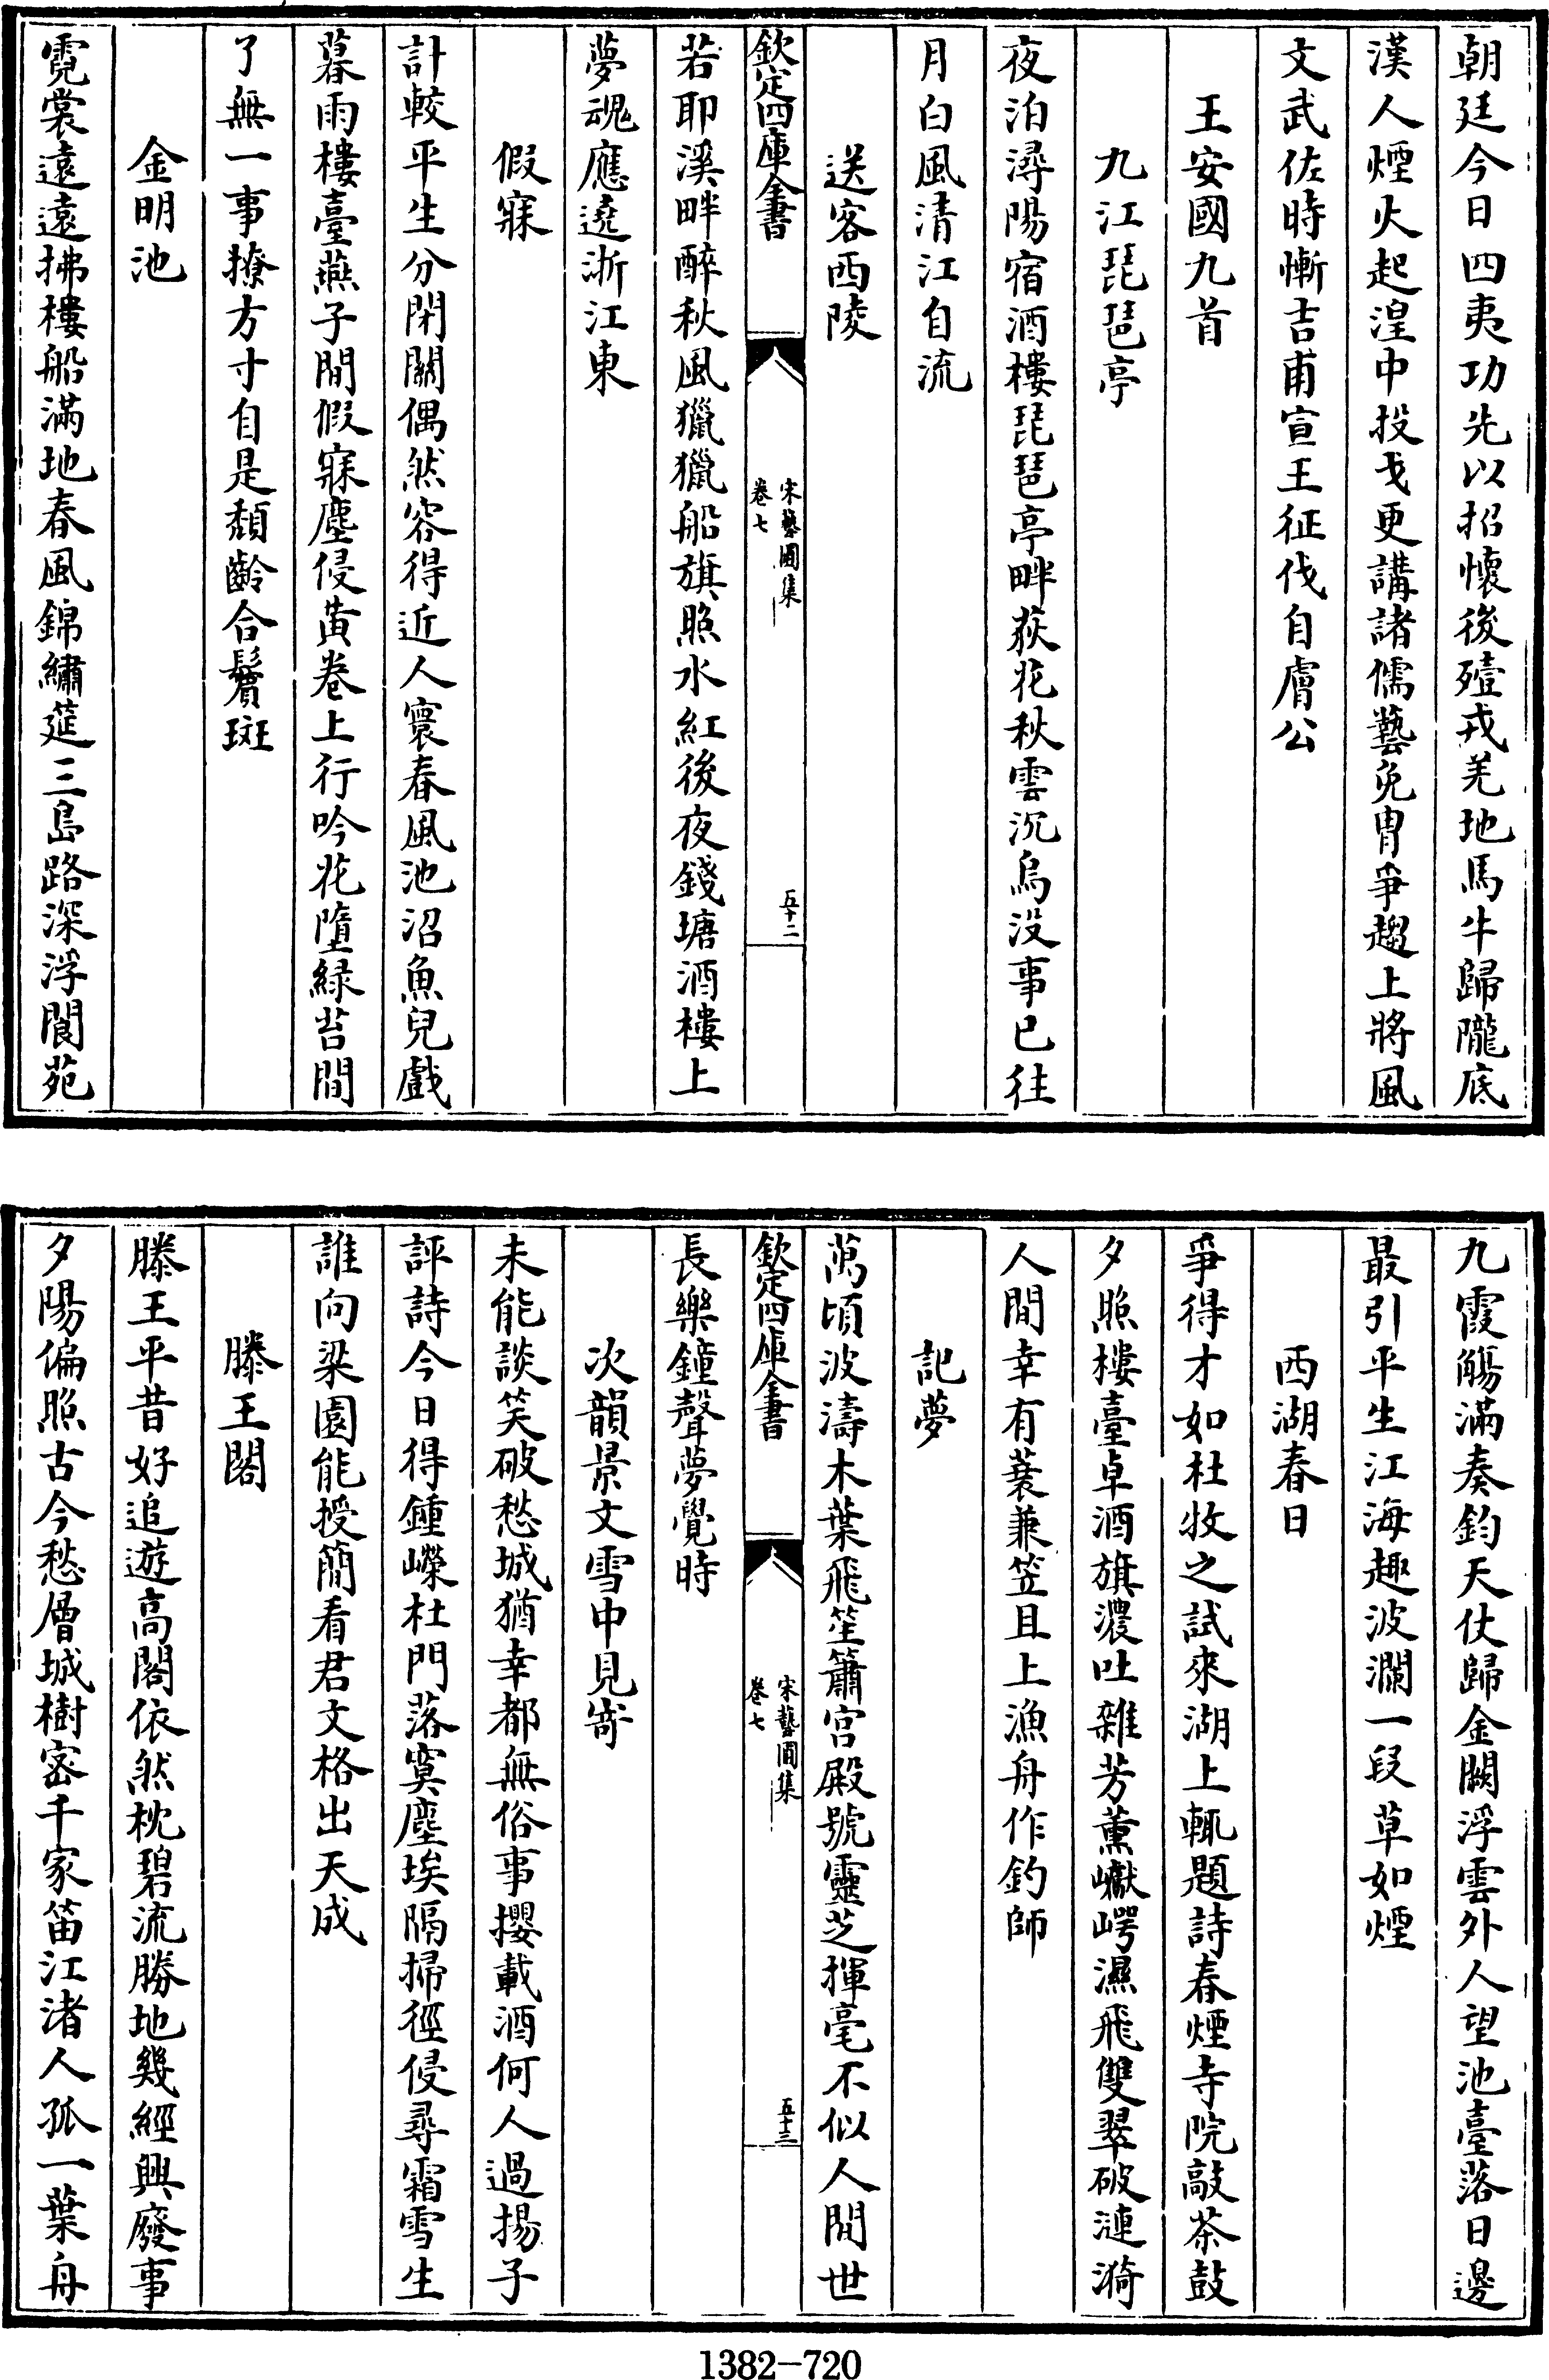 朝廷今日四夷功先以招懷後殪戎羌地馬牛歸隴底
漢人煙火起湟中投戈更講諸儒藝免胄爭趨上將風
文武佐時慚吉甫宣王征伐自膚公
王安國九首
九江琵琶亭
夜泊潯陽宿酒樓琵琶亭畔荻花秋雲沉烏没事已往
月白風清江自流
送客西陵
若耶溪畔醉秋風獵獵船旗照水紅後夜錢塘酒樓上
夢魂應遶浙江東
假寐
計較平生分閉關偶然容得近人寰春風池沼魚兒戲
暮雨樓臺燕子間假寐塵侵黄卷上行吟花墮緑苔間
了無一事撩方寸自是頽齡合鬢斑
金明池
霓裳遠遠拂樓船滿地春風錦繡筵三島路深浮閬苑
欽定四庫全書
宋藝圃集
卷七
五十二
九霞觴滿奏鈞天仗歸金闕浮雲外人望池臺落日邊
最引平生江海趣波瀾一段草如煙
西湖春日
爭得才如杜牧之試來湖上輒題詩春煙寺院敲茶鼓
夕照樓臺卓酒旗濃吐雜芳薰巘崿濕飛雙翠破漣漪
人間幸有蓑兼笠且上漁舟作釣師
記夢
萬頃波濤木葉飛笙簫宮殿號靈芝揮毫不似人間世
長樂鐘聲夢覺時
次韻景文雪中見寄
未能談笑破愁城猶幸都無俗事攖載酒何人過揚子
評詩今日得鍾嶸杜門落寞塵埃隔掃徑侵尋霜雪生
誰向梁園能授簡看君文格出天成
滕王閣
滕王平昔好追遊高閣依然枕碧流勝地幾經興廢事
夕陽偏照古今愁層城樹密千家笛江渚人孤一葉舟
欽定四庫全書
宋藝圃集
卷七
五十三
1382-720